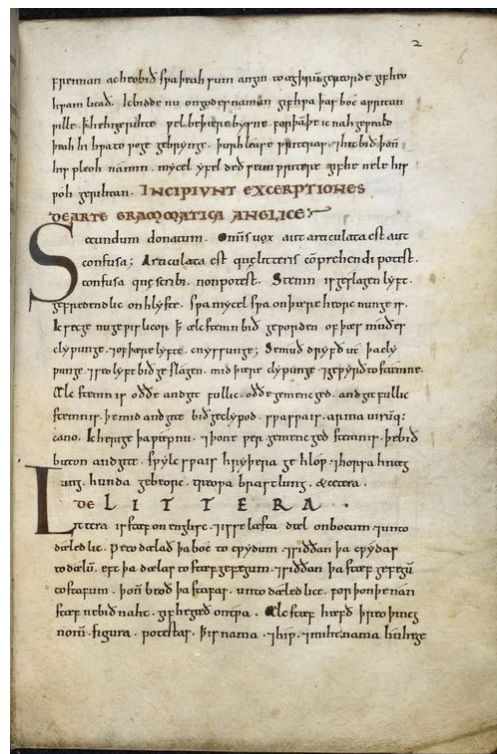 2
fremman ac hƿæðre
gif he
hƿam licað. Ic bidde nu on godes naman gif hƿa þas boc aƿritan
ƿille þæt he hi gerihte ƿel be þære bysne. for þan þe ic nah geƿeald
þeah hi hƿa to ƿoge gebringe. þurh lease ƿriteras. ⁊ hit bið þoñ
his pleoh na min. mycel yfel deð se unƿritere gif he nele his
ƿoh gerihtan. INCIPIVNT EXCERPTIONES
DE ARTE GRAMMATICA ANGLICE:
Secundum donatum. Omnis uox aut articulata est aut
confusa; Articulata est que litteris cõprehendi potest.
confusa que scribi non potest. Stemn is geslagen lyft.
gefredendlic on hlyste. sƿa mycel sƿa on þære heorcnunge is.
Ic secge nu geƿislicor þ ælc stemn bið geƿorden of þæs muðes
clypunge. ⁊ of þære lyfte cnyssunge; Se muð drifð ut þa cly
punge. ⁊ seo lyft bið geslagen. mid þære clypunge ⁊ geƿyrð to stemne.
Ælc stemn is oððe andgitfullic. oððe gemenged. andgitfullic
stemn is. þe mid andgite bið geclypod. sƿa sƿa is. arma uirũq;
cano. Ic herige þa ƿæpnu. ⁊ þone ƿer. gemenged stemn is. þe bið
buton andgite. sƿylc sƿa is hryþera gehloƿ. ⁊ horsa hnæg
ung. hunda gebeorc. treoƿa brastlung. & cetera.
DE LITTERA.
Littera is stæf on englisc. ⁊ is se læsta dæl on bocum. ⁊ unto
dæledlic. ƿe todælað þa boc to cƿydum. ⁊ siððan þa cƿydas
to dælũ. eft þa dælas to stæfgefegum. ⁊ siððan þa stæfgefegũ
to stafum. þoñ beoð þa stafas untodæledlice. for þon þe nan
stæf ne bið naht. gif he gæð on tƿa. Ælc stæf hæfð þreo þing
nom̃. figura. potestas. þ is nama. ⁊ hiƿ. ⁊ miht. nama hu hit ge